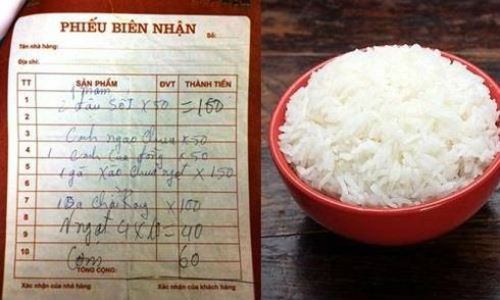 PHIẾU BIÊN NHẬN
Số:
Tên nhà hàng:
Địa chỉ:
TT SẢN PHẨM ĐVT THÀNH TIỀN
1
2 đậu sốt x 50 = 150
2
3 Canh ngao chua x 50
4 1 canh cua đồng x 50
5 1 gà xào chua ngọt x 150
6
7 1 Ba chỉ x 100
8
9 N ngọt 4 x 10 = 40
10 Cơm 60
TỔNG CỘNG:
Xác nhận của nhà hàng Xác nhận của khách hàng